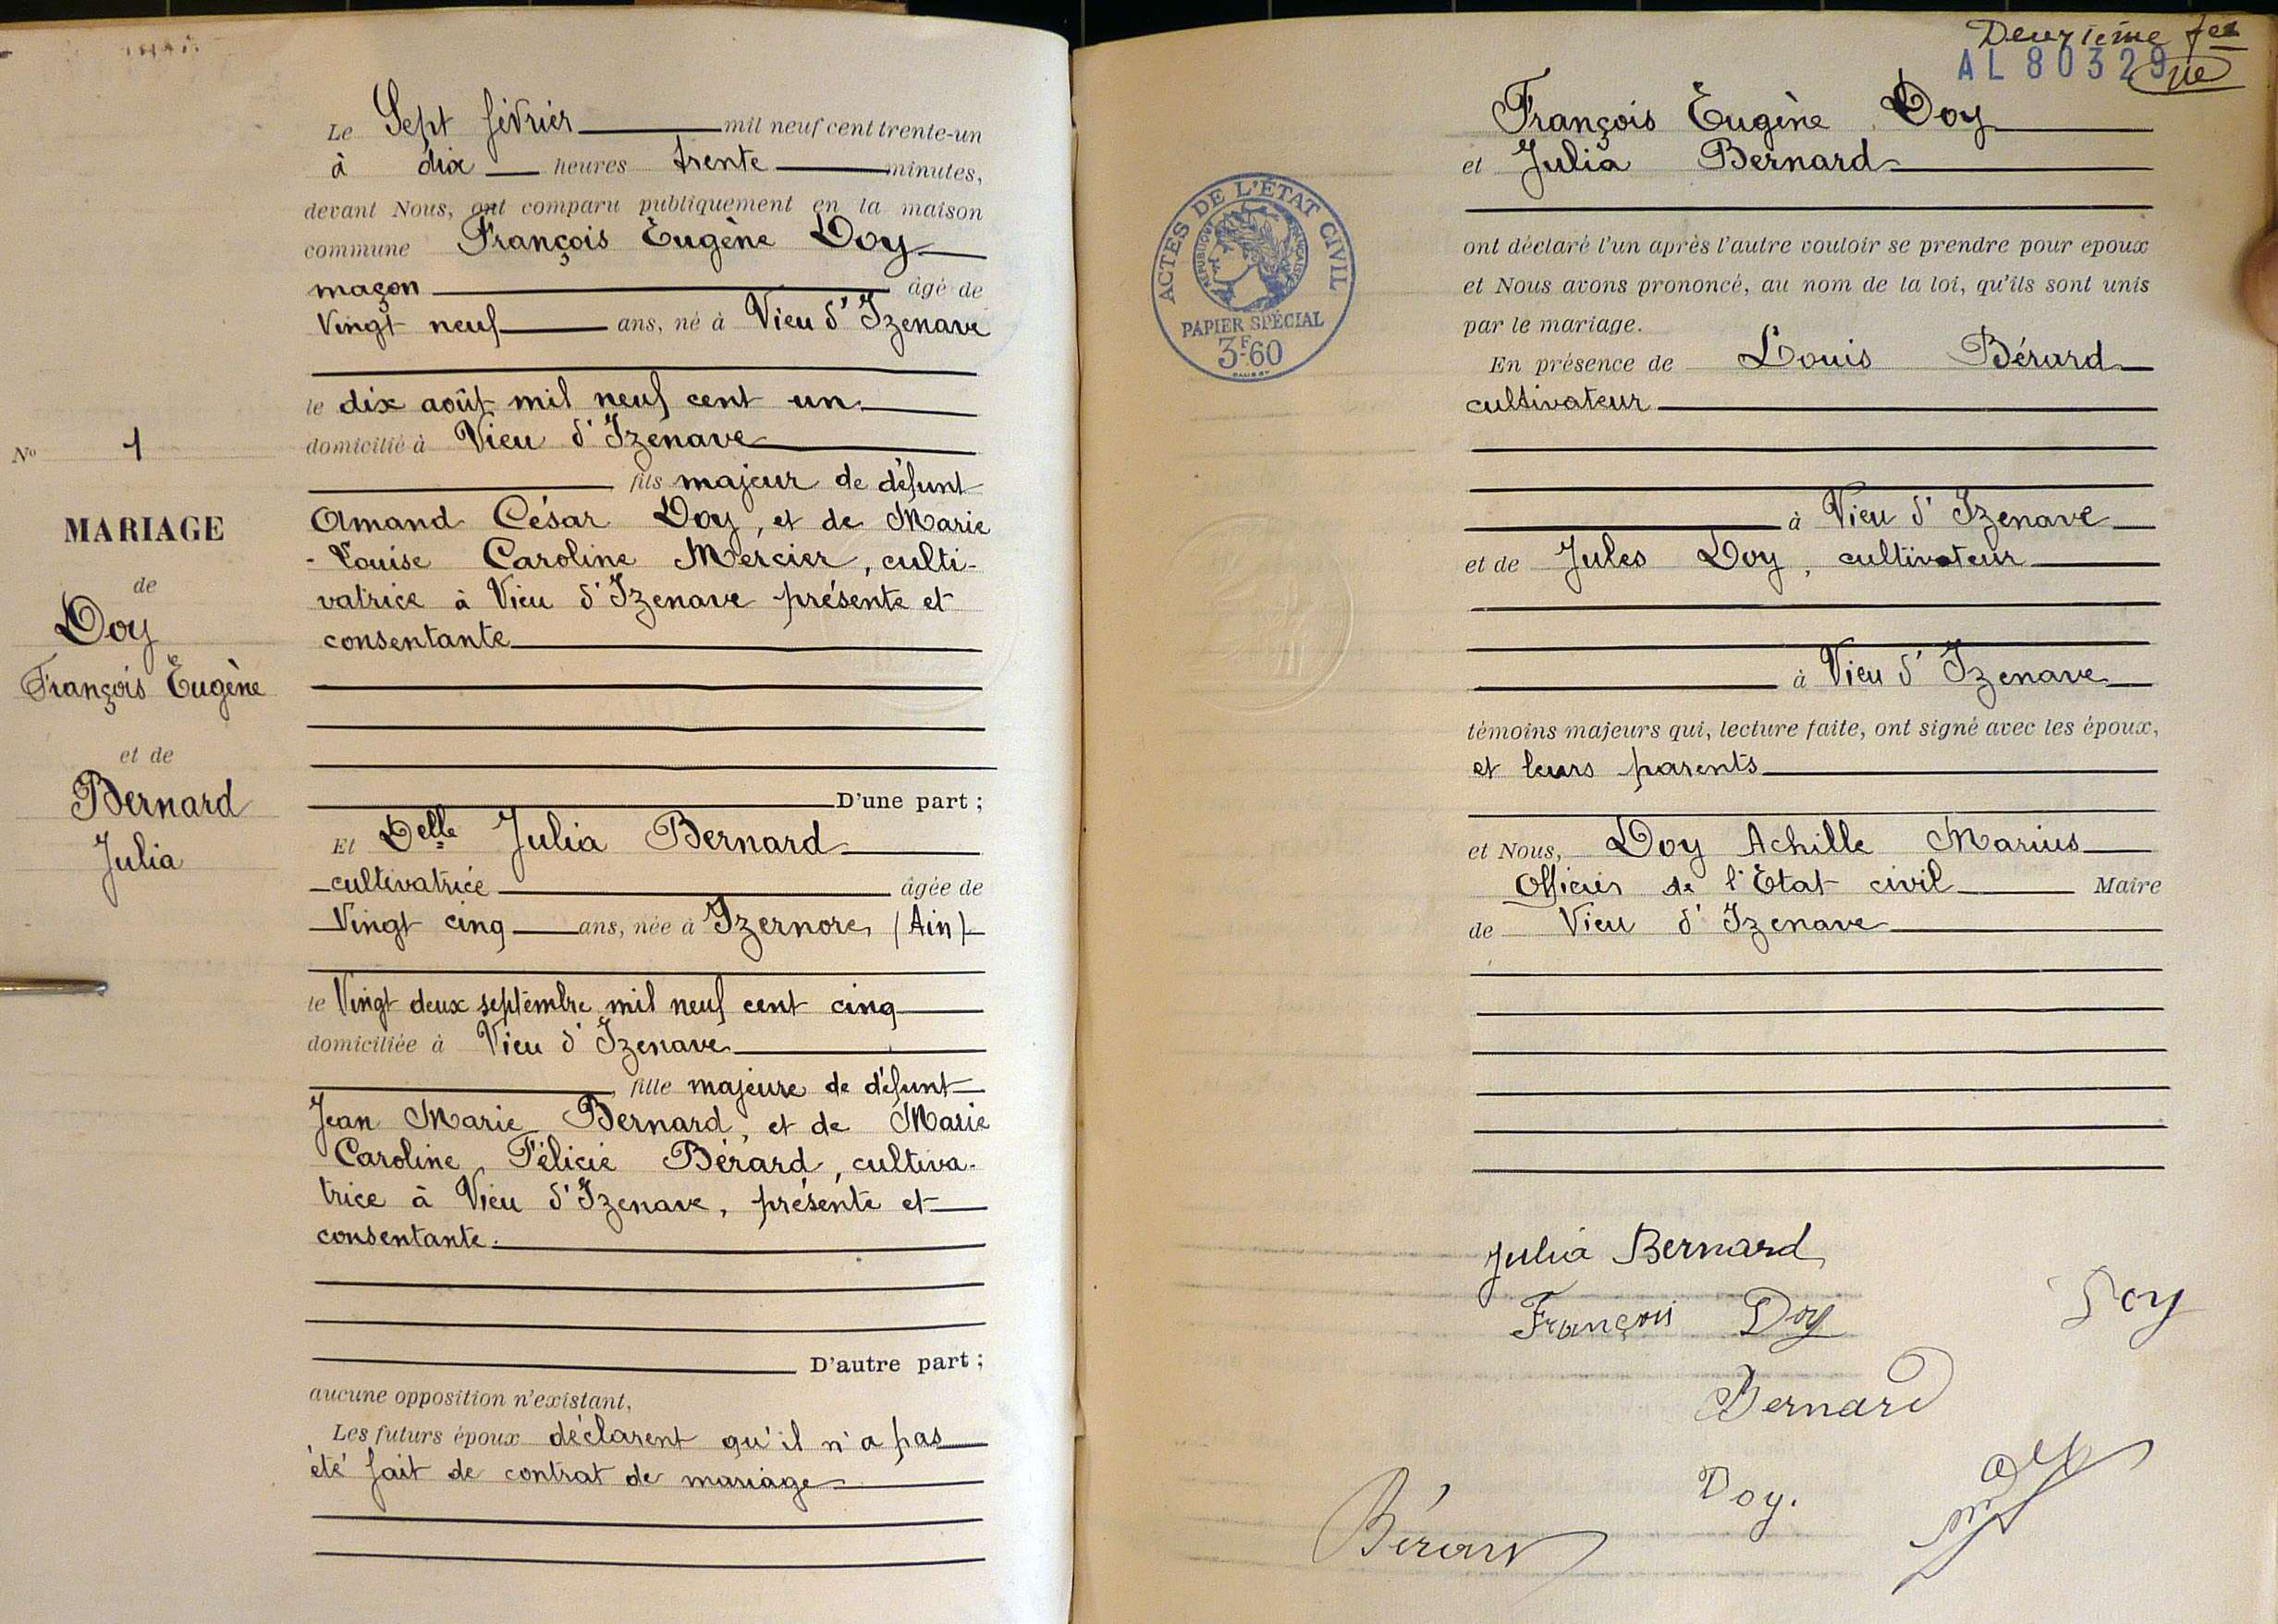 Le Sept février mil neuf cent trente-un
à dix heures trente minutes,
devant Nous, ont comparu publiquement en la maison
commune François Eugène Doy
maçon âgé de
Vingt neuf ans, né à Vieu d'Izenave
le dix août mil neuf cent un
domicilié à Vieu d'Izenave
fils majeur de défunt
Amand César Doy, et de Marie
-Louise Caroline Mercier, culti-
vatrice à Vieu d'Izenave présente et
consentante
D'une part ;
Et Delle Julia Bernard
cultivatrice âgée de
Vingt cinq ans, née à Izernore (Ain)
le Vingt deux septembre mil neuf cent cinq
domiciliée à Vieu d'Izenave
fille majeure de défunt
Jean Marie Bernard, et de Marie
Caroline Félicie Bérard, cultiva-
trice à Vieu d'Izenave, présente et
consentante.
D'autre part ;
aucune opposition n'existant,
Les futurs époux déclarent qu'il n'a pas
été fait de contrat de mariage
No 1
MARIAGE
de
Doy
François Eugène
et de
Bernard
Julia
Deuxième
AL 80329
François Eugène Doy
et Julia Bernard
ont déclaré l'un après l'autre vouloir se prendre pour epoux
et Nous avons prononcé, au nom de la loi, qu'ils sont unis
par le mariage.
En présence de Louis Bérard
cultivateur
à Vieu d'Izenave
et de Jules Doy, cultivateur
à Vieu d'Izenave
témoins majeurs qui, lecture faite, ont signé avec les époux,
et leurs parents
et Nous, Doy Achille Marius
Officier de l'Etat civil Maire
de Vieu d'Izenave
ACTES DE L'ÉTAT CIVIL
RÉPUBLIQUE FRANÇAISE
PAPIER SPÉCIAL
3F60
Julia Bernard
François Doy
Doy
Bernard
Doy.
Bérard